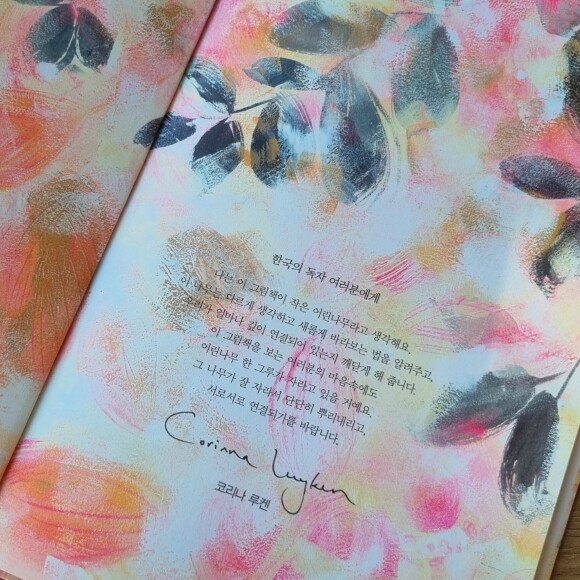 한국의 독자 여러분에게
나는 이 그림책이 작은 어린나무라고 생각해요.
이 나무는 다르게 생각하고 새롭게 바라보는 법을 알려주고,
우리가 얼마나 깊이 연결되어 있는지 깨닫게 해 줍니다.
이 그림책을 보는 여러분의 마음속에도
어린나무 한 그루가 자라고 있을 거예요.
그 나무가 잘 자라서 단단히 뿌리내리고,
서로서로 연결되기를 바랍니다.
Corinna Luyken
코리나 루켄